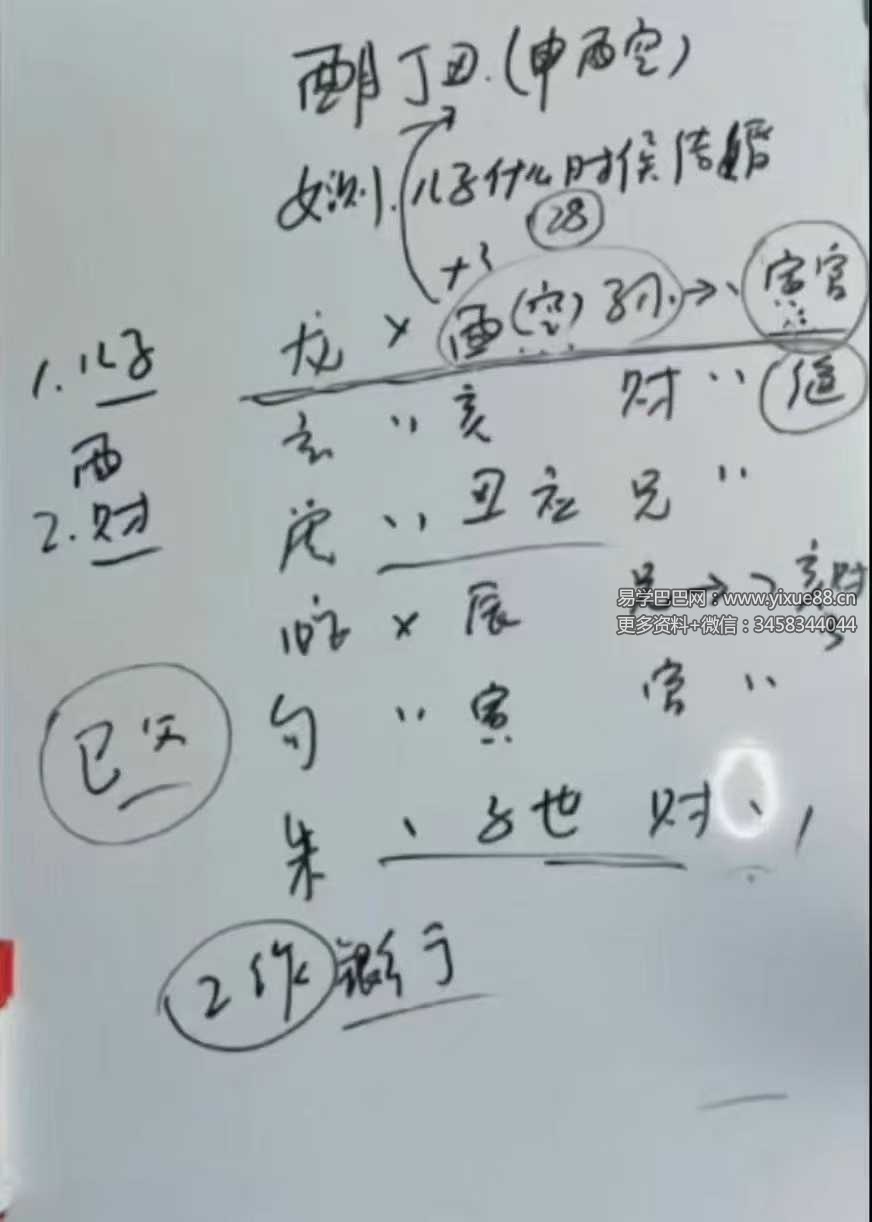 酉月丁丑.(申酉空)
女测.儿子什么时候结婚
28
龙 × 酉(空)子孙→、寅官
1.儿子
玄 〃 亥 财〃
酉
2.财
虎 〃 丑应 兄〃
蛇 × 辰 兄→ 亥财
易学巴巴网:www.yixue88.cn
更多资料+微信:3458344044
勾 〃 寅 官〃
巳父
朱 、子世 财
工作 银行